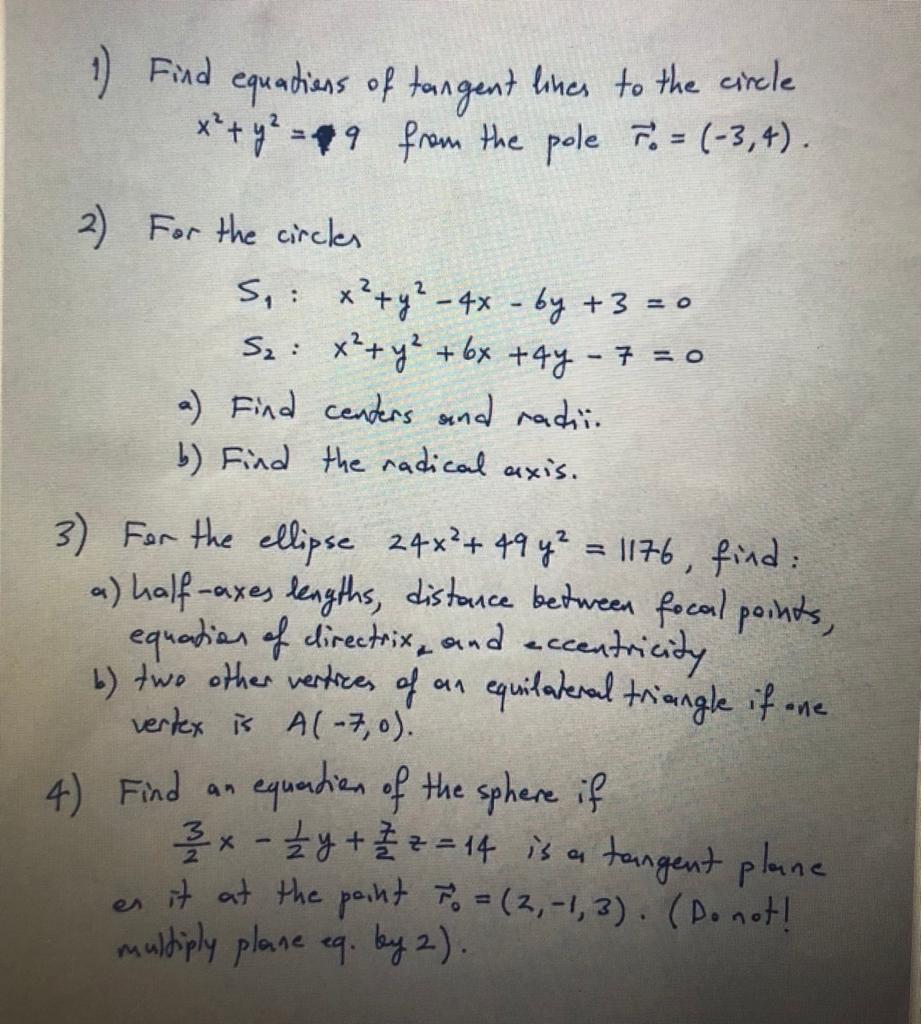 1) Find equations of tangent lines to the circle
x² + y² = 9 from the pole r⃗₀ = (-3,4).
2) For the circles
S₁ : x² + y² - 4x - 6y + 3 = 0
S₂ : x² + y² + 6x + 4y - 7 = 0
a) Find centers and radii.
b) Find the radical axis.
3) For the ellipse 24x² + 49y² = 1176, find :
a) half-axes lengths, distance between focal points,
equation of directrix, and eccentricity
b) two other vertices of an equilateral triangle if one
vertex is A(-7,0).
4) Find an equation of the sphere if
3/2 x - 1/2 y + 7/2 z = 14 is a tangent plane
on it at the point r⃗₀ = (2,-1,3). (Do not!
multiply plane eq. by 2).